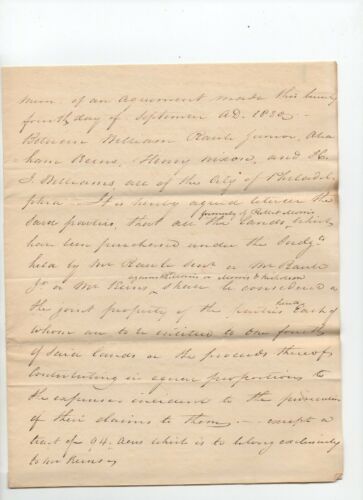 Mem. of an agreement made this twenty
fourth day of September AD. 1832
Between William Rawle Junior, Abra
ham Kerns, Henry Nixon, and H.
J Williams, all of the City of Philadel
phia — It is hereby agreed between the
formerly of Robert Morris
said parties, that all the lands, which
have been purchased under the Judgts
held by Mr Rawle Senr or Mr Rawle
against Morris or Morris & Nicholson
Jr or Mr Kerns, shall be considered as
the joint property of the parties hereto Each of
whom are to be entitled to one fourth
of said lands or the proceeds thereof
Contributing in equal proportions to
the expenses incident to the
of their claims to them — except a
tract of 94. acres which is to belong exclusively
to Mr Kerns